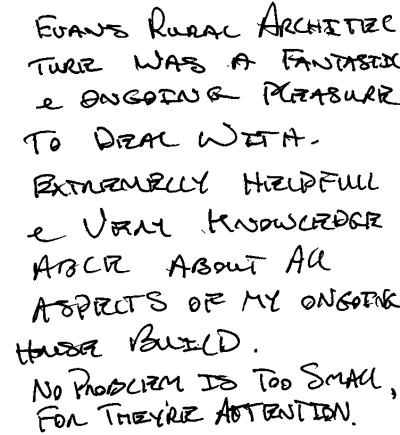 EVANS RURAL ARCHITEC
TURE WAS A FANTASTIC
& ONGOING PLEASURE
TO DEAL WITH.
EXTREMELLY HELPFULL
& VERY KNOWLEDGE
ABLE ABOUT ALL
ASPECTS OF MY ONGOING
HOUSE BUILD.
NO PROBLEM IS TOO SMALL,
FOR THEY'RE ATTENTION.